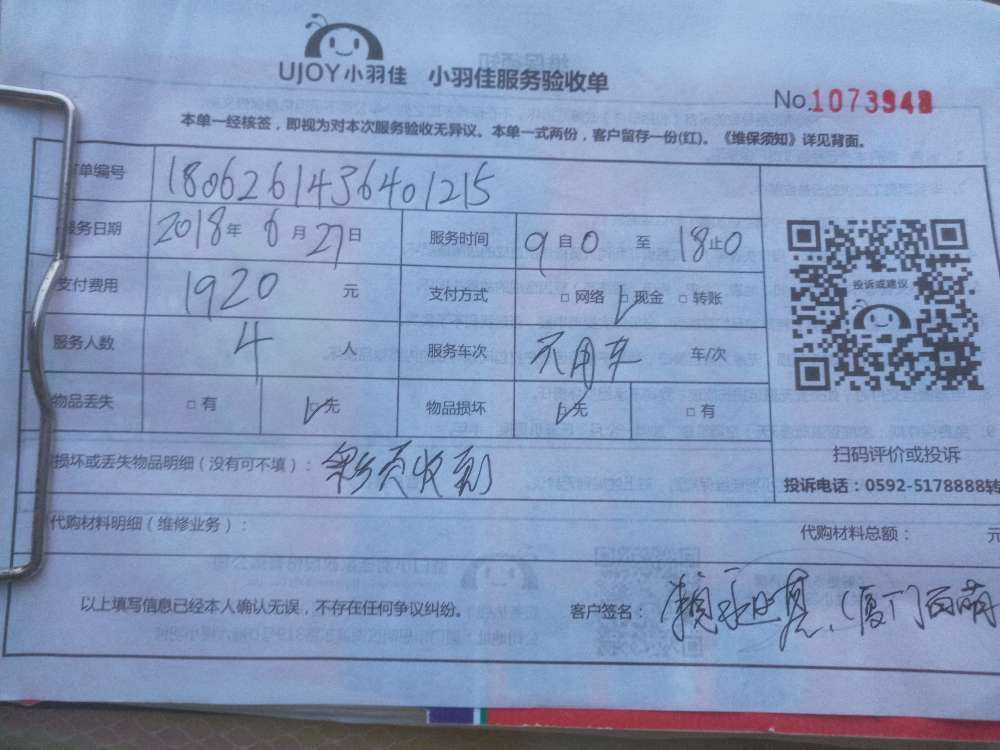 UJOY小羽佳 小羽佳服务验收单
No.1073948
本单一经核签，即视为对本次服务验收无异议。本单一式两份，客户留存一份(红)。《维保须知》详见背面。
单编号 1806261436401215
服务日期 2018年 6月27日 服务时间 9自0 至 18止0
支付费用 1920 元 支付方式 □ 网络 □ 现金 □ 转账
投诉或建议
服务人数 4 人 服务车次 不用车 车/次
物品丢失 □ 有 □ 无 物品损坏 □ 无 □ 有
损坏或丢失物品明细（没有可不填）：彩页收到
扫码评价或投诉
投诉电话：0592-5178888转
代购材料明细（维修业务）： 代购材料总额： 元
以上填写信息已经本人确认无误，不存在任何争议纠纷。 客户签名：(厦门